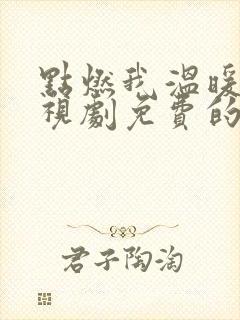 點燃我溫暖
視劇免費的
君子陶淘